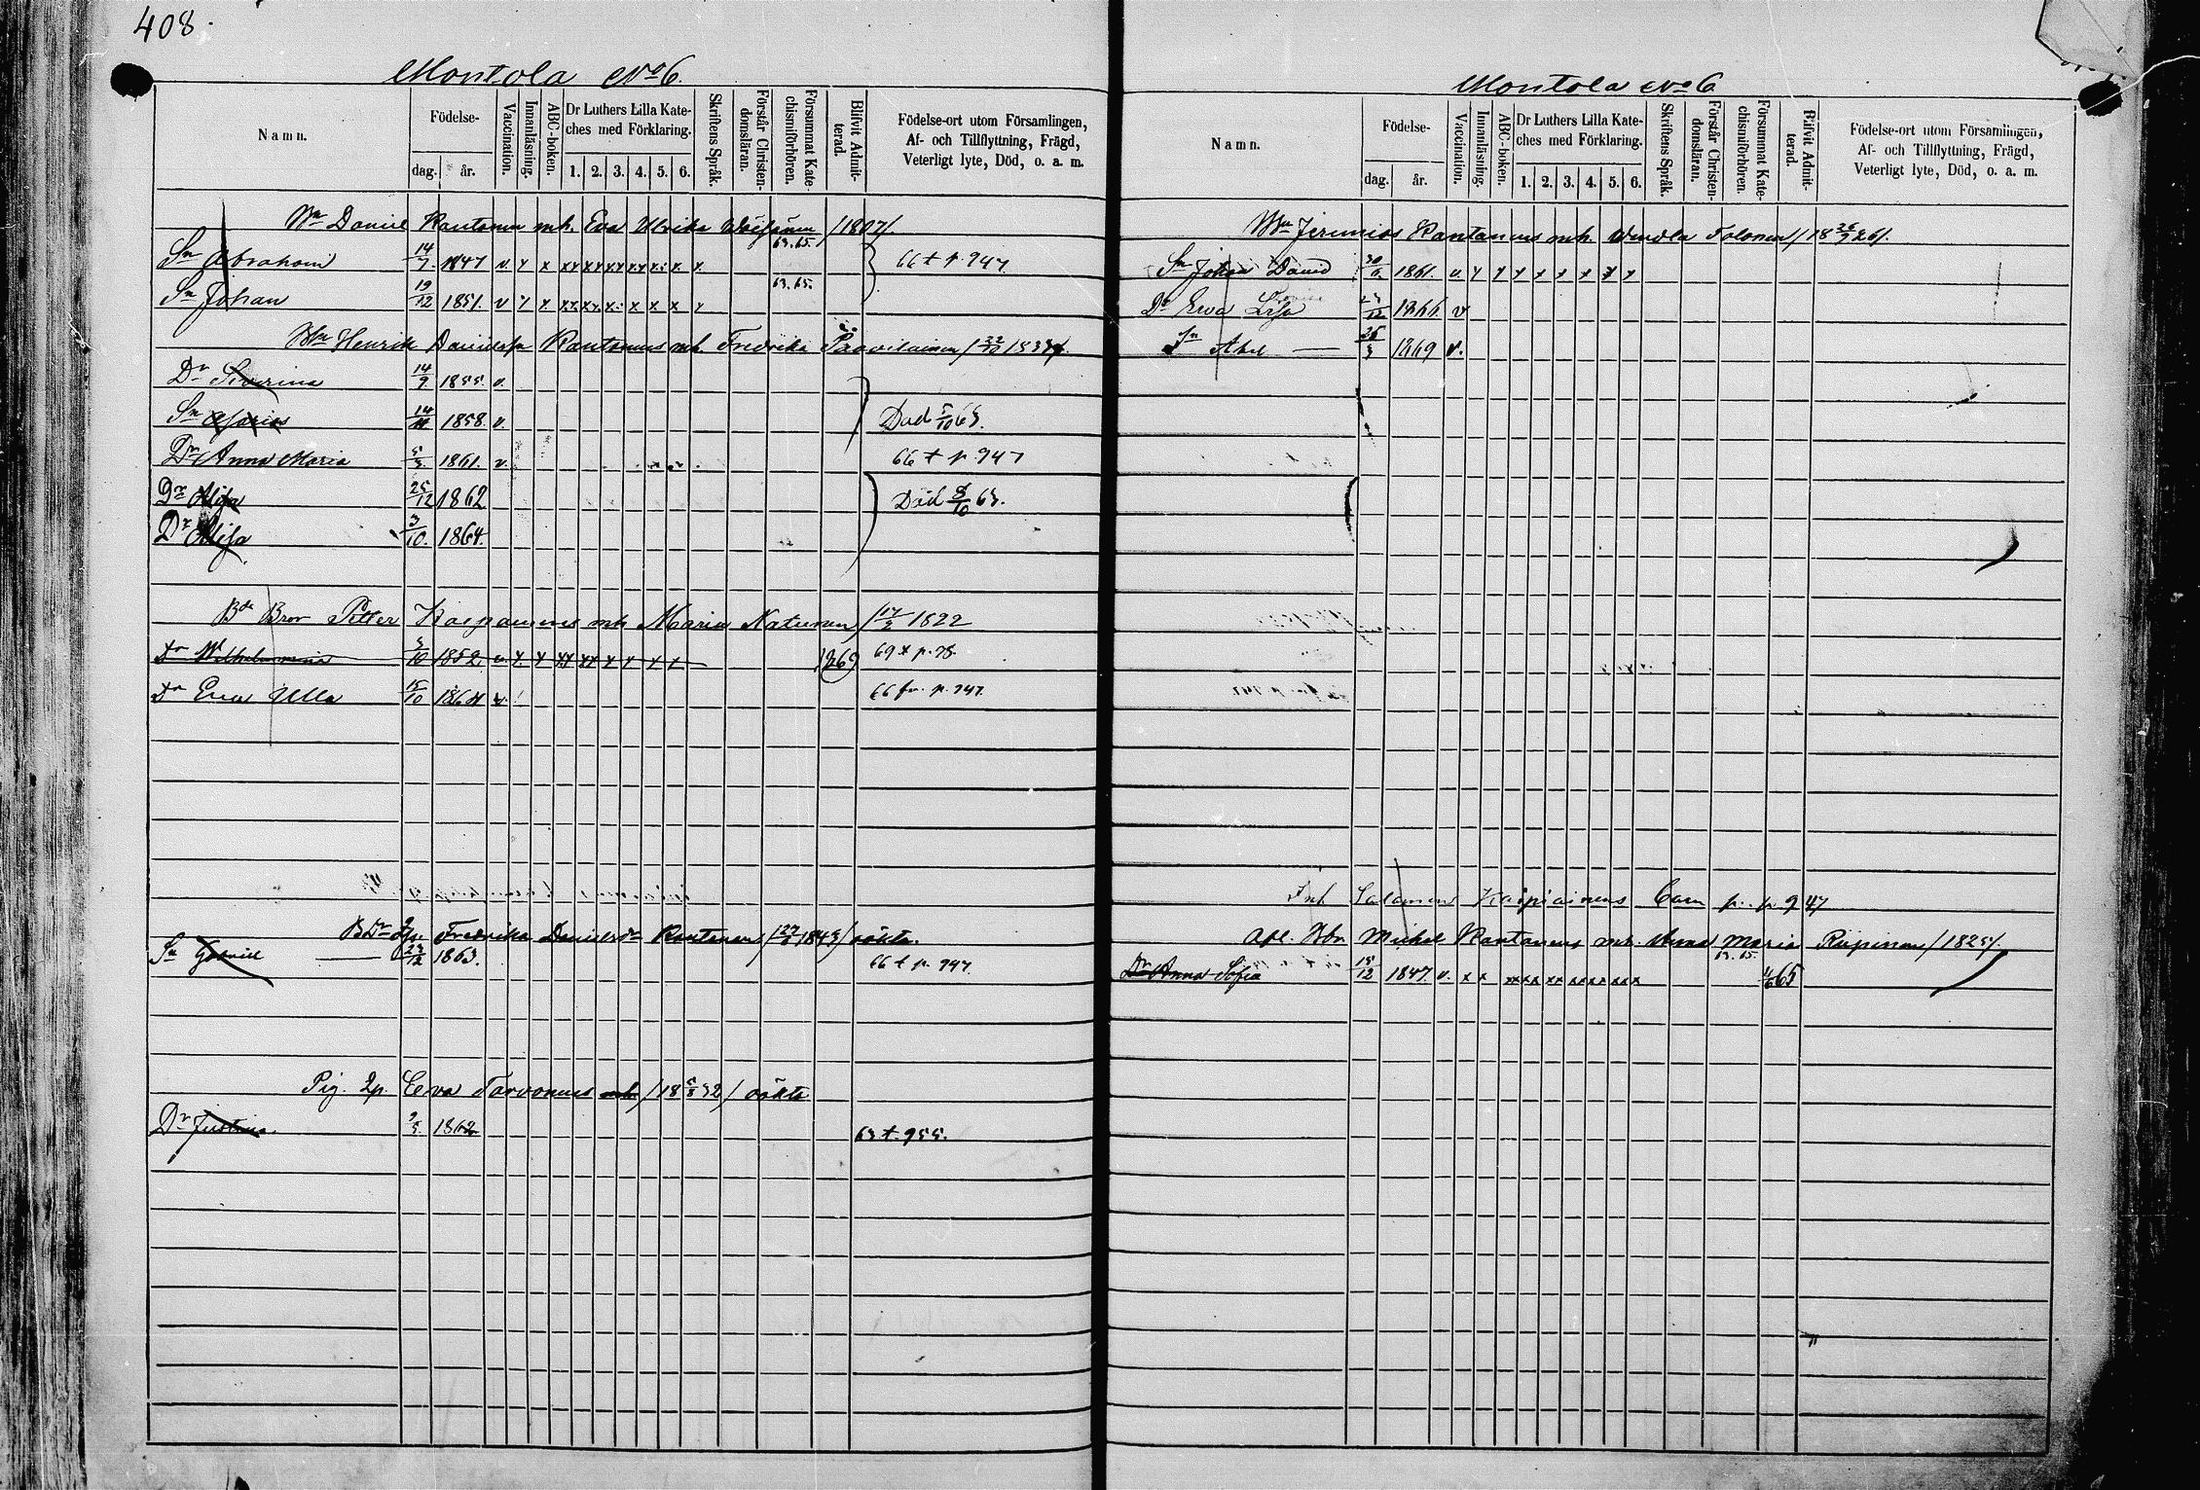 408.
Montola No 6.
Namn.
Födelse-
dag.
år.
Vaccination.
Innanläsning.
ABC-boken.
Dr Luthers Lilla Kate-
ches med Förklaring.
1. 2. 3. 4. 5. 6.
Skriftens Språk.
Förstår Christen-
domsläran.
Försummat Kate-
chismiförhören.
Blifvit Admit-
terad.
Födelse-ort utom Församlingen,
Af- och Tillflyttning, Frägd,
Veterligt lyte, Död, o. a. m.
Daniel Rantanen mh. Eva Ulrika /1807/.
63.65.
Sn Abraham 14/7 1847 v x x xx xx xx xx x x x 66 t p 947
63.65.
Sn Johan 19/12 1851. v x x xx xx x x x x x
Henrik Danielss. Rantanens mh. Fredrika Paavilainen /22/10 1833/.
Dr Severina 14/9 1855. v.
Sn 1858. v. Död 5/10 63.
Dr Anna Maria 5/3 1861. v. 66 t p 947
Dr 25/12 1862 Död 8/10 63.
Dr 3/10. 1864.
Bdr Bror Petter Kaipainens mh Maria Natunen /17/2 1822
Dr Wilhelmina 3/10 1852. v x x xx xx x x x x 1869 69 t p. 78.
Dr Eva Ulla 15/10 1864 v. 66 fr. p. 947.
Fredrika Danielsdr Rantanen 1843/ oäkta.
Sn Gabriel 1863. 66 t p. 947.
Pig. 2p. Eva Tarvonens mh /18 5/8 32/ oäkta
Dr Justina. 1862 63 t. 955.
Montola No 6
Namn.
Födelse-
dag.
år.
Vaccination.
Innanläsning.
ABC-boken.
Dr Luthers Lilla Kate-
ches med Förklaring.
1. 2. 3. 4. 5. 6.
Skriftens Språk.
Förstår Christen-
domsläran.
Försummat Kate-
chismiförhören.
Blifvit Admit-
terad.
Födelse-ort utom Församlingen,
Af- och Tillflyttning, Frägd,
Veterligt lyte, Död, o. a. m.
Jeremias Rantanens mh. Wendla Tolonen /18 26/.
Sn Johan David 30/6 1861. v x x x x x x x x
Dr Eva Lisa 1866 v
Sn Abel — 1869 v.
Inh Salomon Kaipiainens Barn fr. p 947
Afl. Michel Rantanens mh. Anna Maria Riipinen /1825/.
63. 65.
Dr Anna Sofia 15/12 1847. v. x x xx xx xx xx x x x x 65